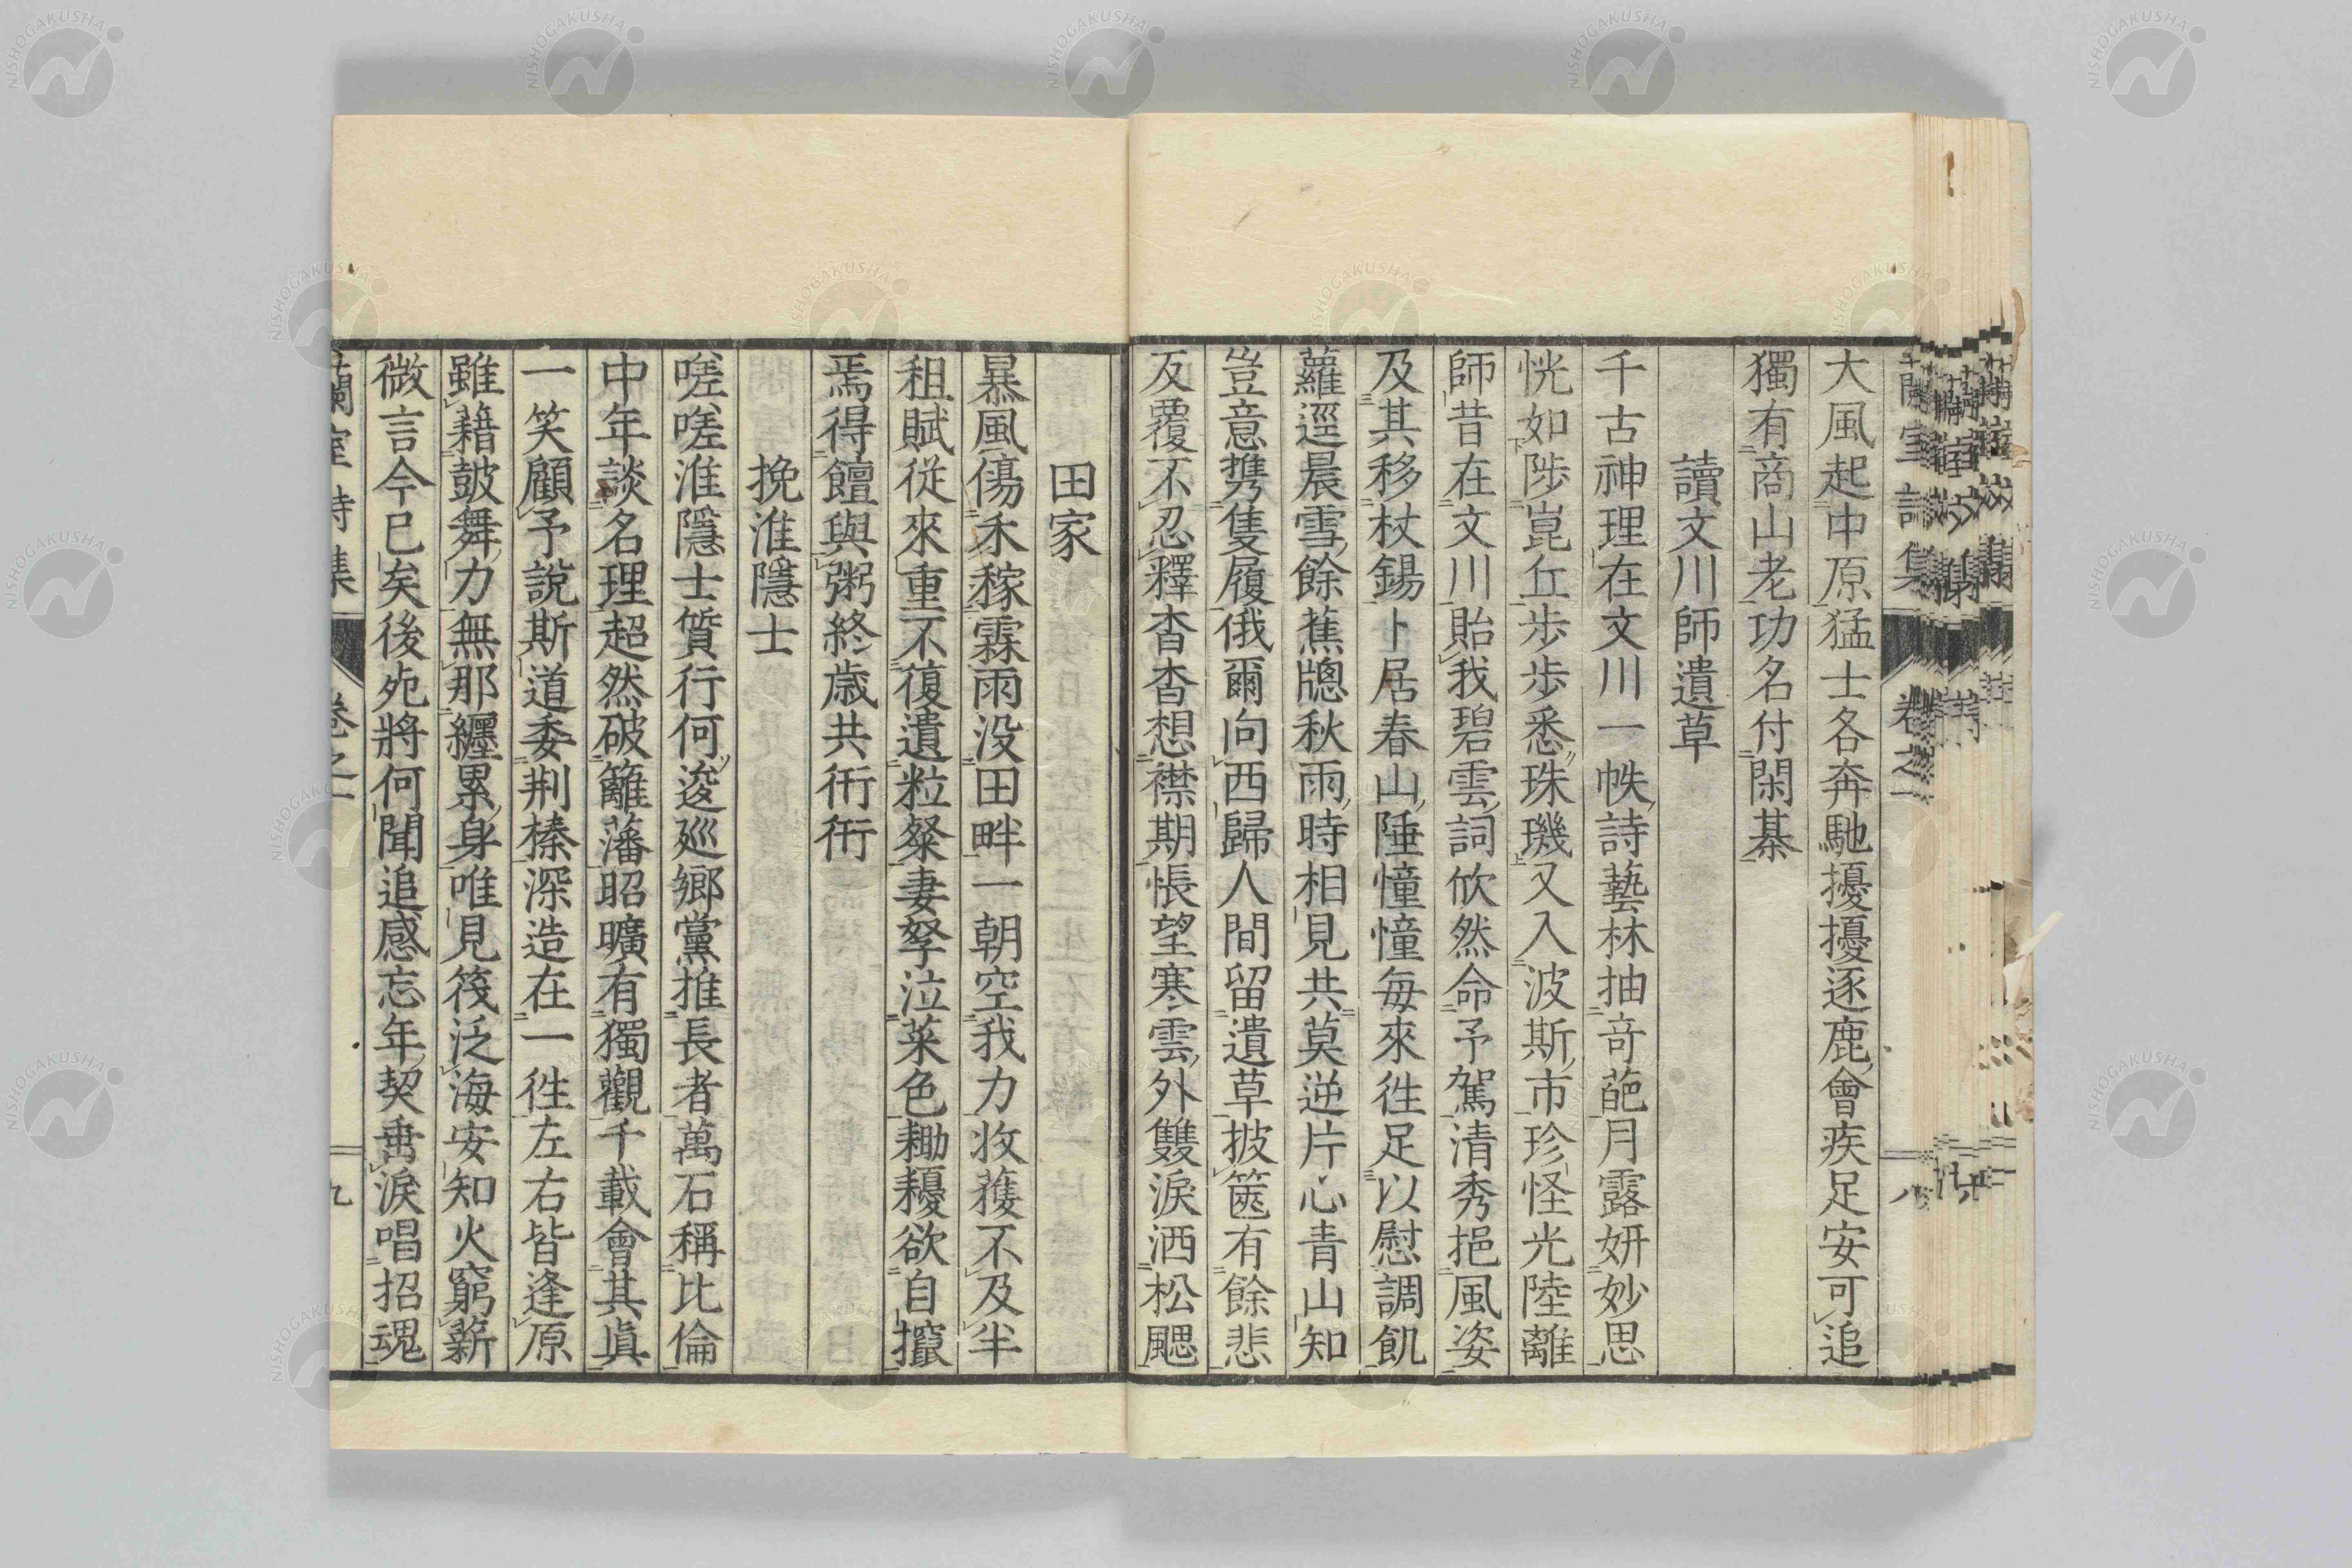 大風起中原猛士各奔馳擾擾逐鹿會疾足安可追
獨有商山老功名付閑棊
讀文川師遺草
千古神理在文川一帙詩藝林抽奇葩月露妍妙思
恍如陟崑丘步步悉珠璣又入波斯市珍怪光陸離
師昔在文川貽我碧雲詞欣然命予駕清秀挹風姿
及其移杖錫卜居春山陲憧憧每來往足以慰調飢
蘿逕晨雪餘蕉牕秋雨時相見共莫逆片心青山知
豈意携隻履俄爾向西歸人間留遺草披篋有餘悲
反覆不忍釋杳杳想襟期悵望寒雲外雙淚洒松颸
田家
暴風傷禾稼霖雨没田畔一朝空我力收穫不及半
租賦從來重不復遺粒粲妻孥泣菜色耡耰欲自攛
焉得饘與粥終歳共衎衎
挽淮隱士
嗟嗟淮隱士質行何逡巡鄉黨推長者萬石稱比倫
中年談名理超然破籬藩昭曠有獨觀千載會其眞
一笑顧予說斯道委荆榛深造在一徃左右皆逢原
雖藉鼓舞力無那纒累身唯見筏泛海安知火窮薪
微言今已矣後死將何聞追感忘年契垂淚唱招魂
蘭室詩集
卷之一
九
室詩集
卷之一
八
NISHOGAKUSHA